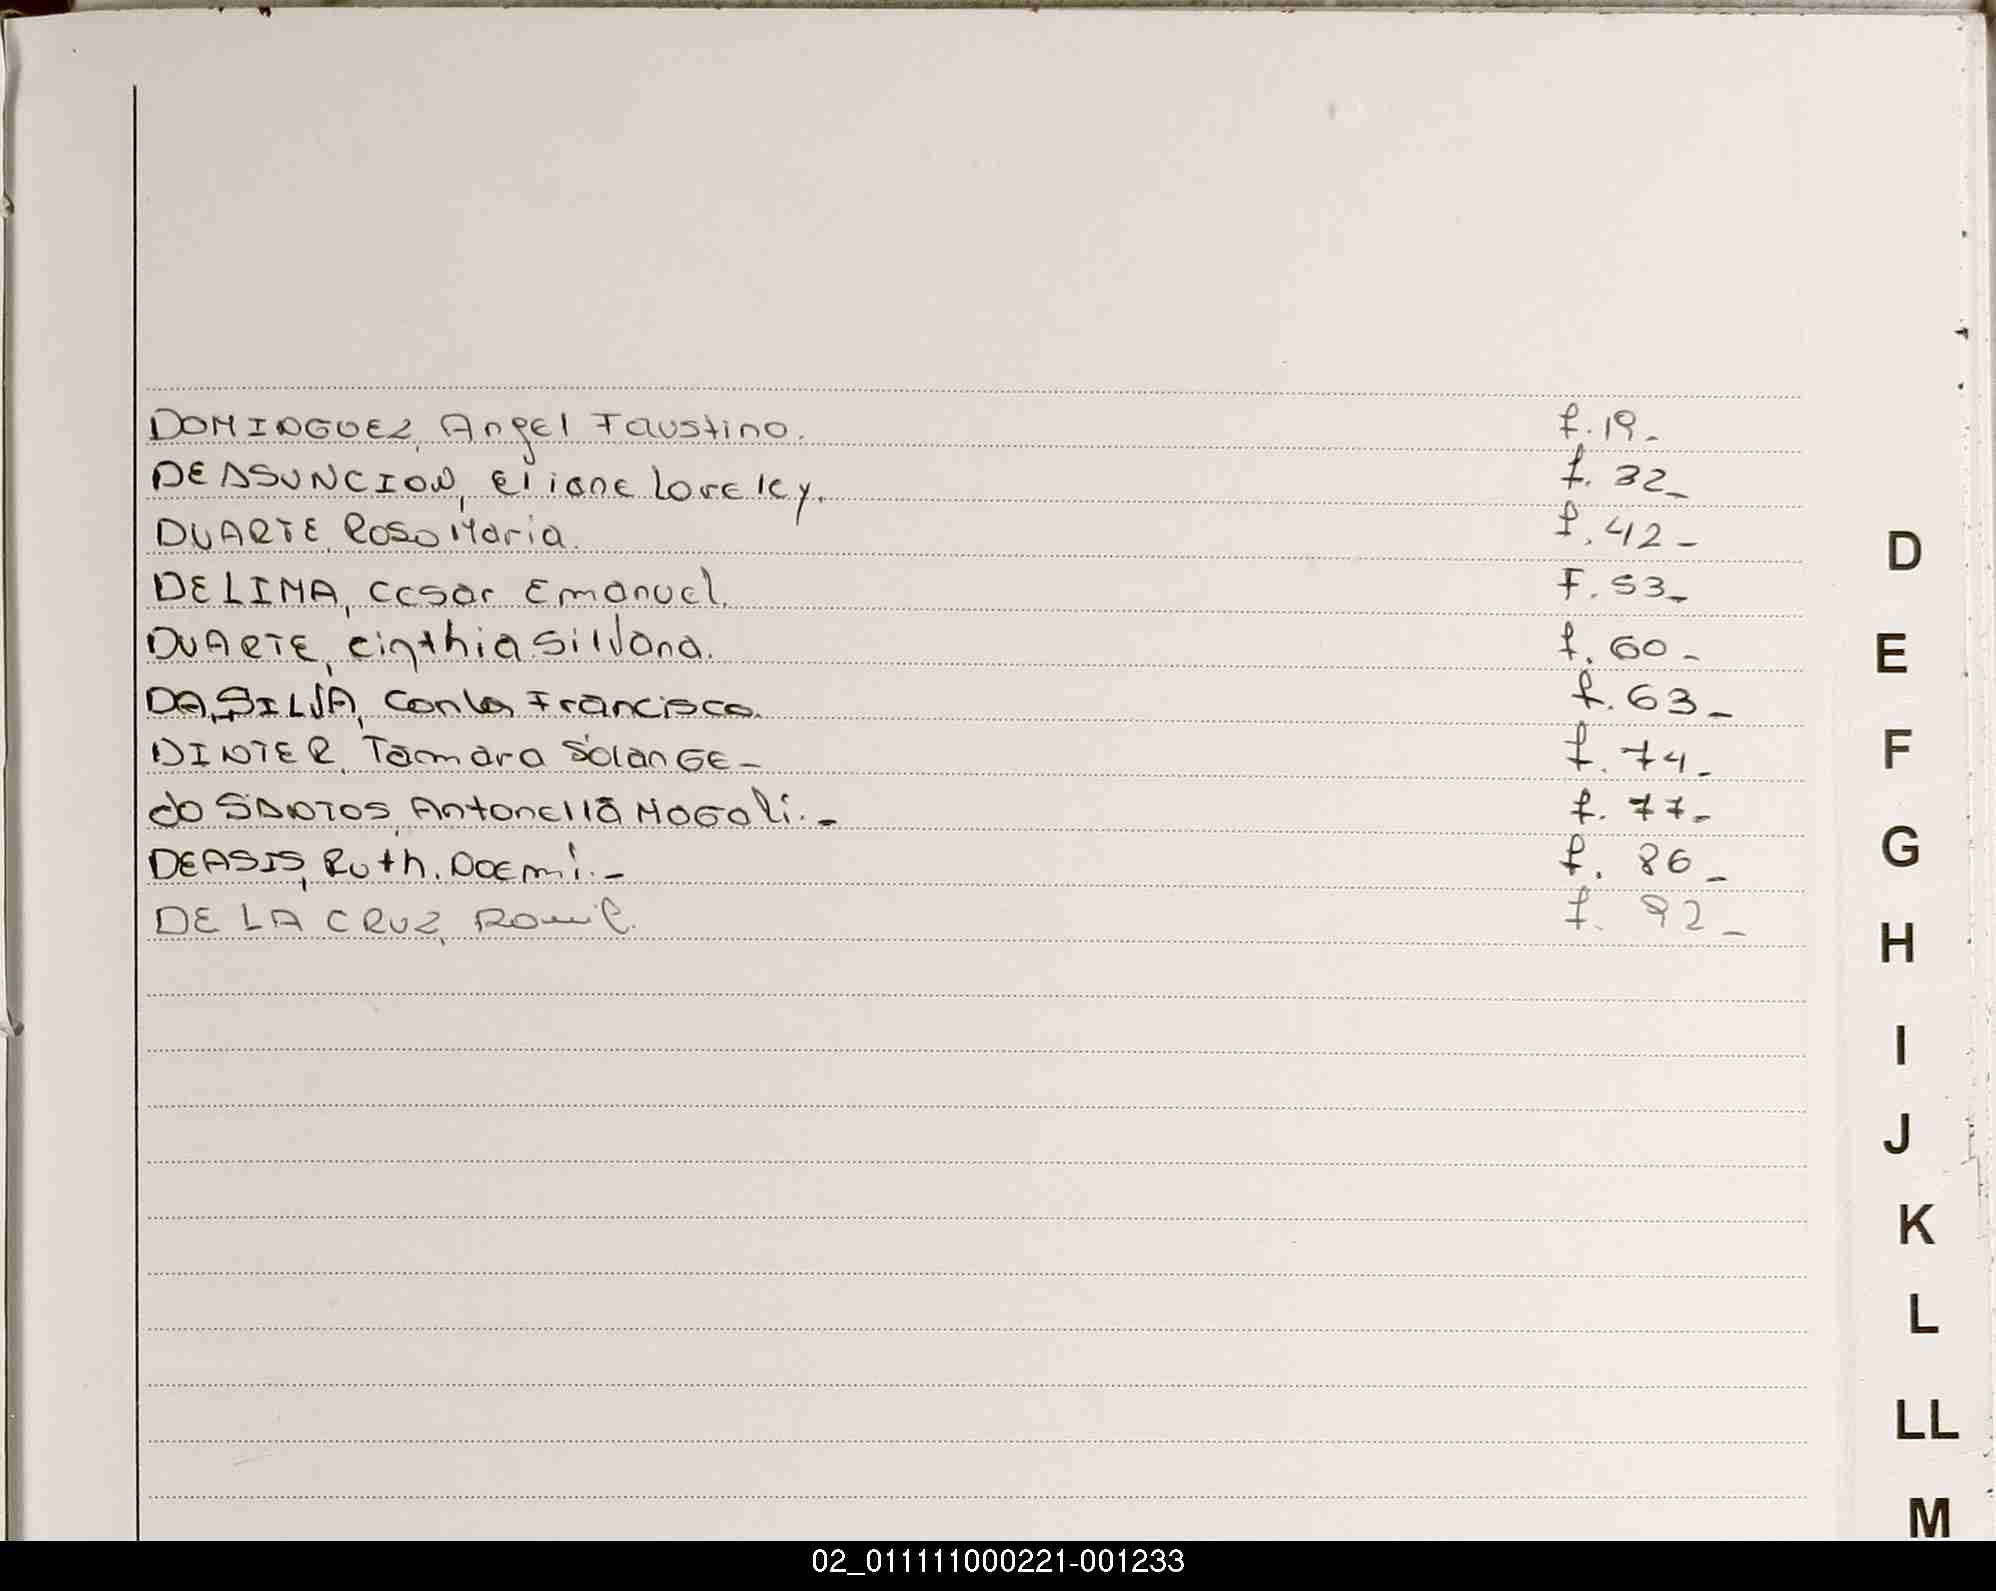 DOMINGUEZ, Angel Faustino. f. 19-
DEASSUNCION, Eliane Loreley. f. 32-
DUARTE, Rosa Maria. f. 42-
DELIMA, Cesar Emanuel. F. 53-
DUARTE, Cinthia Silvana. f. 60-
DA SILVA, Carlos Francisco. f. 63-
DINTER, Tamara Solange- f. 74-
do SANTOS, Antonella Magali.- f. 77-
DEASIS, Ruth. Noemi.- f. 86-
DE LA CRUZ, f. 92-
D
E
F
G
H
I
J
K
L
LL
M
02_011111000221-001233